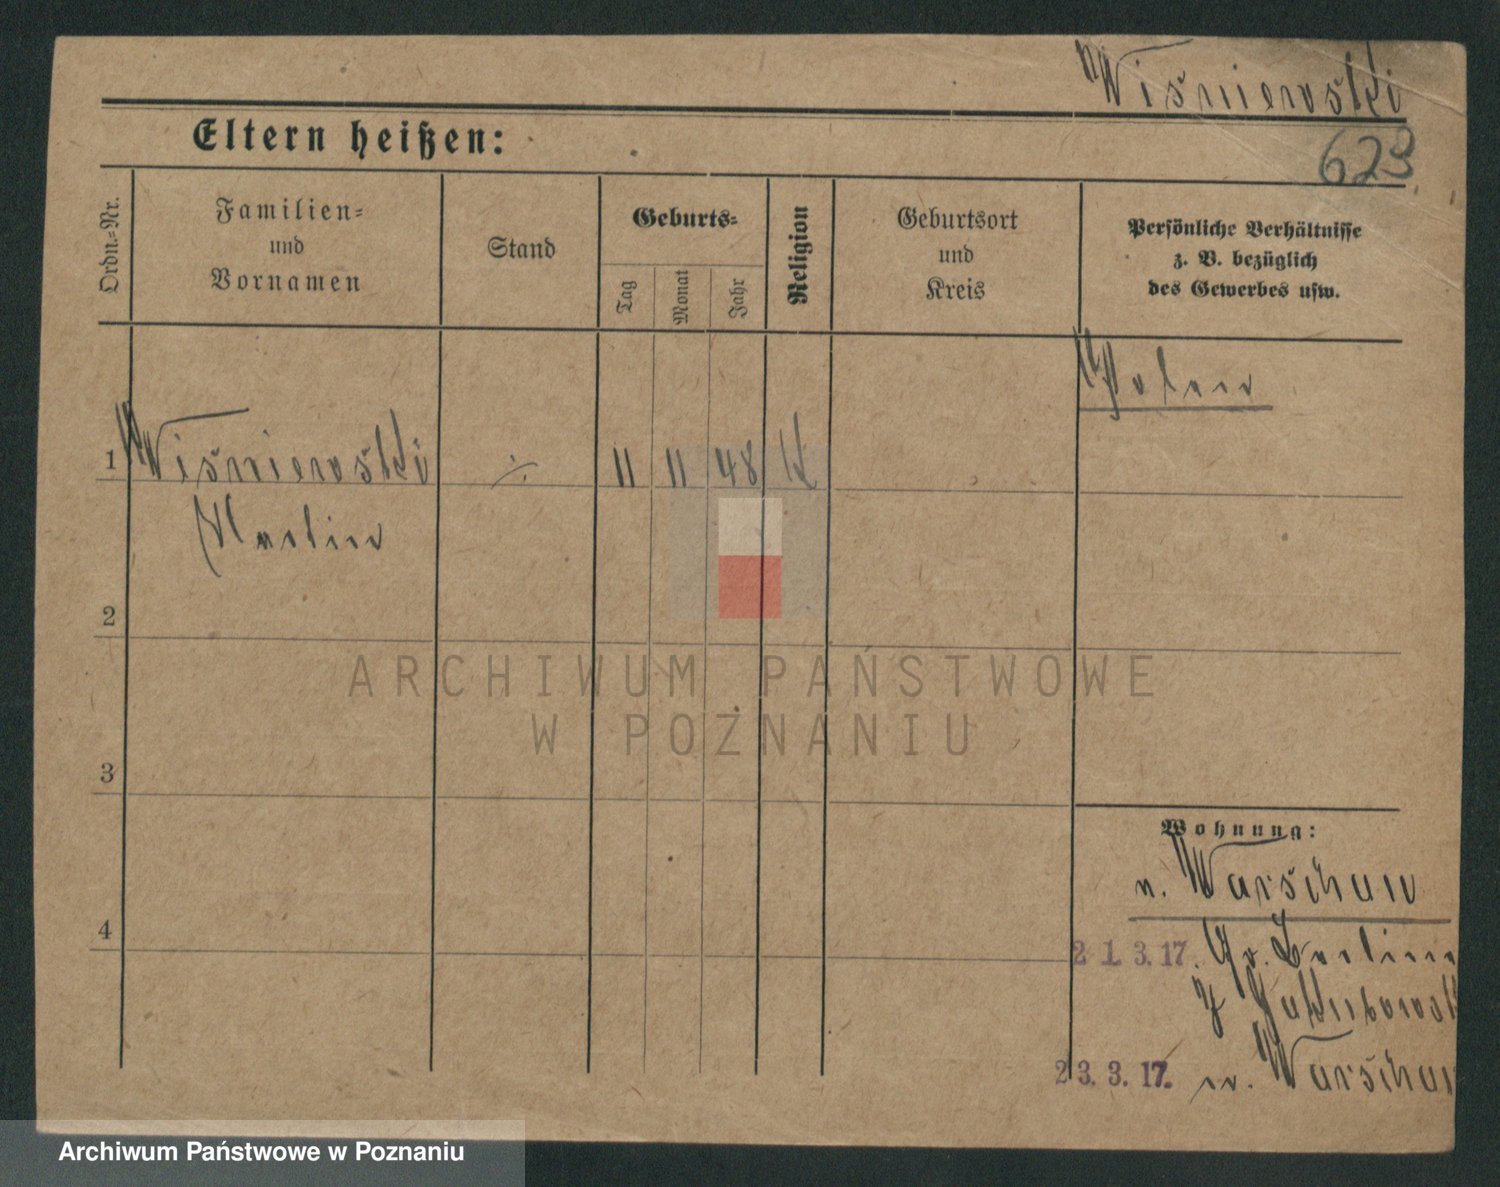 Wiśniewski
Eltern heißen:
623
Ordn.=Nr.
Familien=
und
Vornamen
Stand
Geburts=
Tag
Monat
Jahr
Religion
Geburtsort
und
Kreis
Persönliche Verhältnisse
z. B. bezüglich
des Gewerbes usw.
Polen
1 Wiśniewski ·/· 11 11 48 K
Martin
2
ARCHIWUM PAŃSTWOWE
W POZNANIU
3
Wohnung:
n. Warschau
4
21.3.17. Gr. Berliner
Jakubowski
23.3.17. n. Warschau
Archiwum Państwowe w Poznaniu